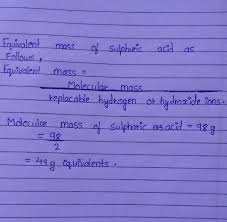 Equivalent mass of sulphuric acid as
Follows,
Equivalent mass =
Molecular mass
replacable hydrogen or hydroxide ions.
Molecular mass of sulphuric as acid = 98g
= 98
2
= 49g equivalents.